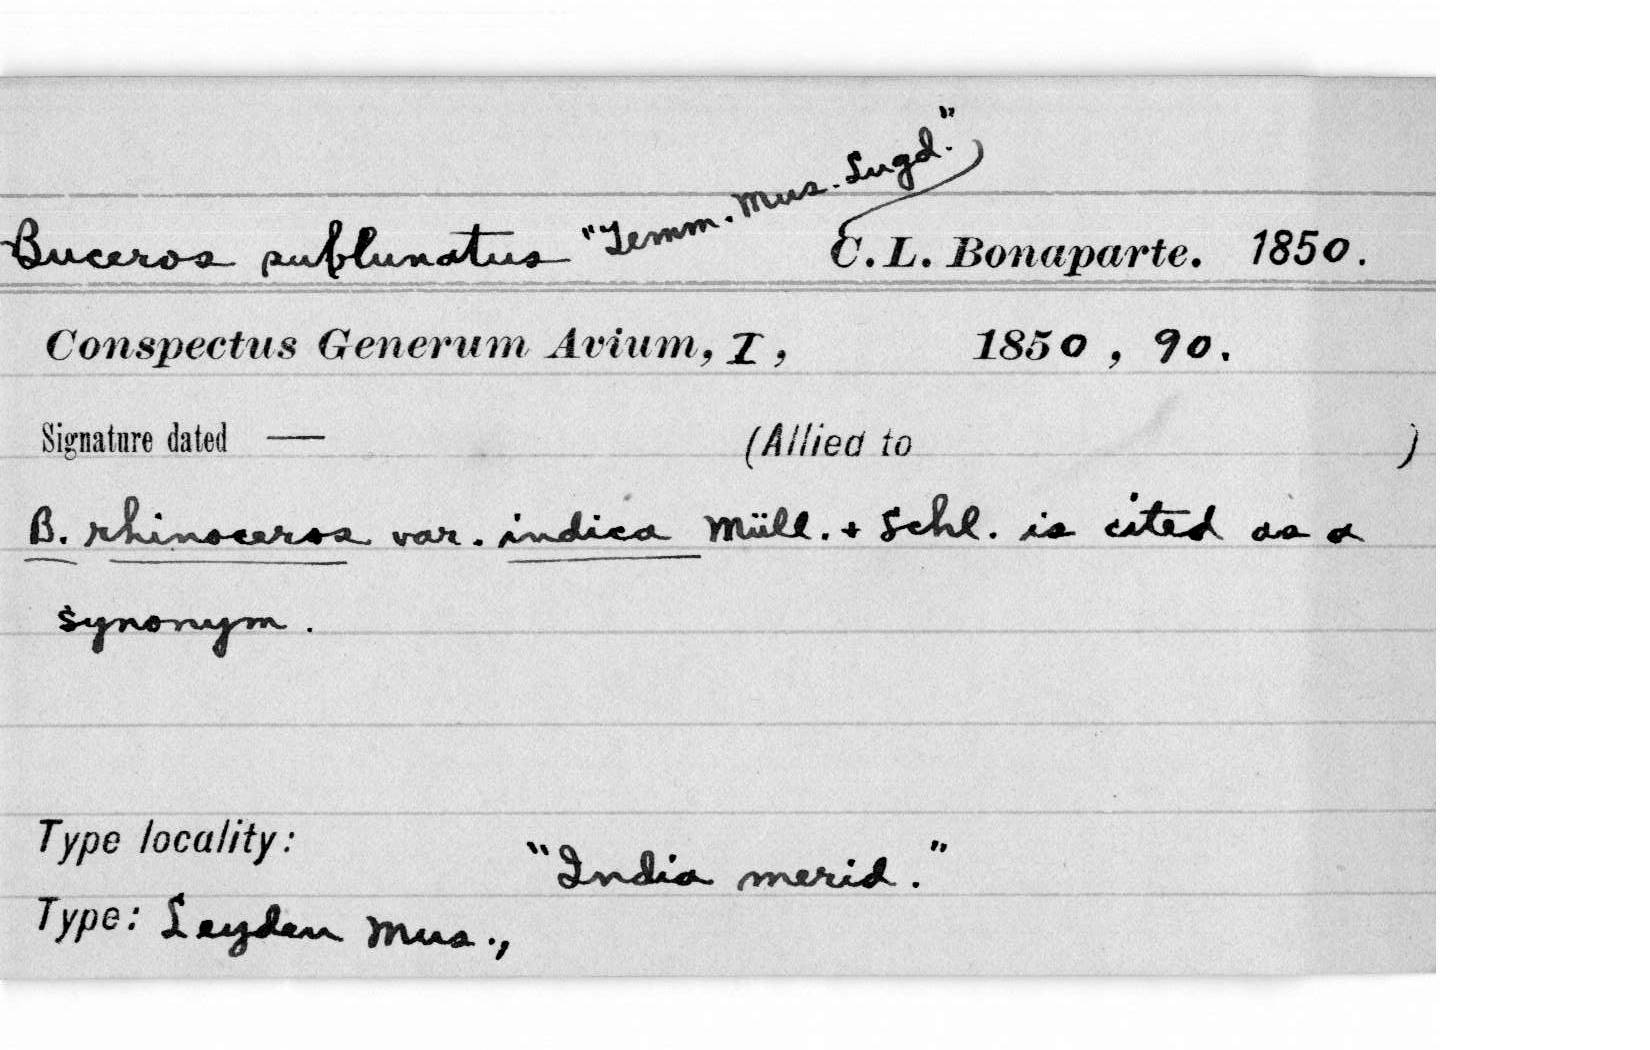 Buceros sublunatus "Temm. Mus. Lugd." C. L. Bonaparte. 1850.
Conspectus Generum Avium, I, 1850, 90.
Signature dated — (Allied to )
B. rhinoceros var. indica Müll. + Schl. is cited as a
synonym.
Type locality: "India merid."
Type: Leyden Mus.,